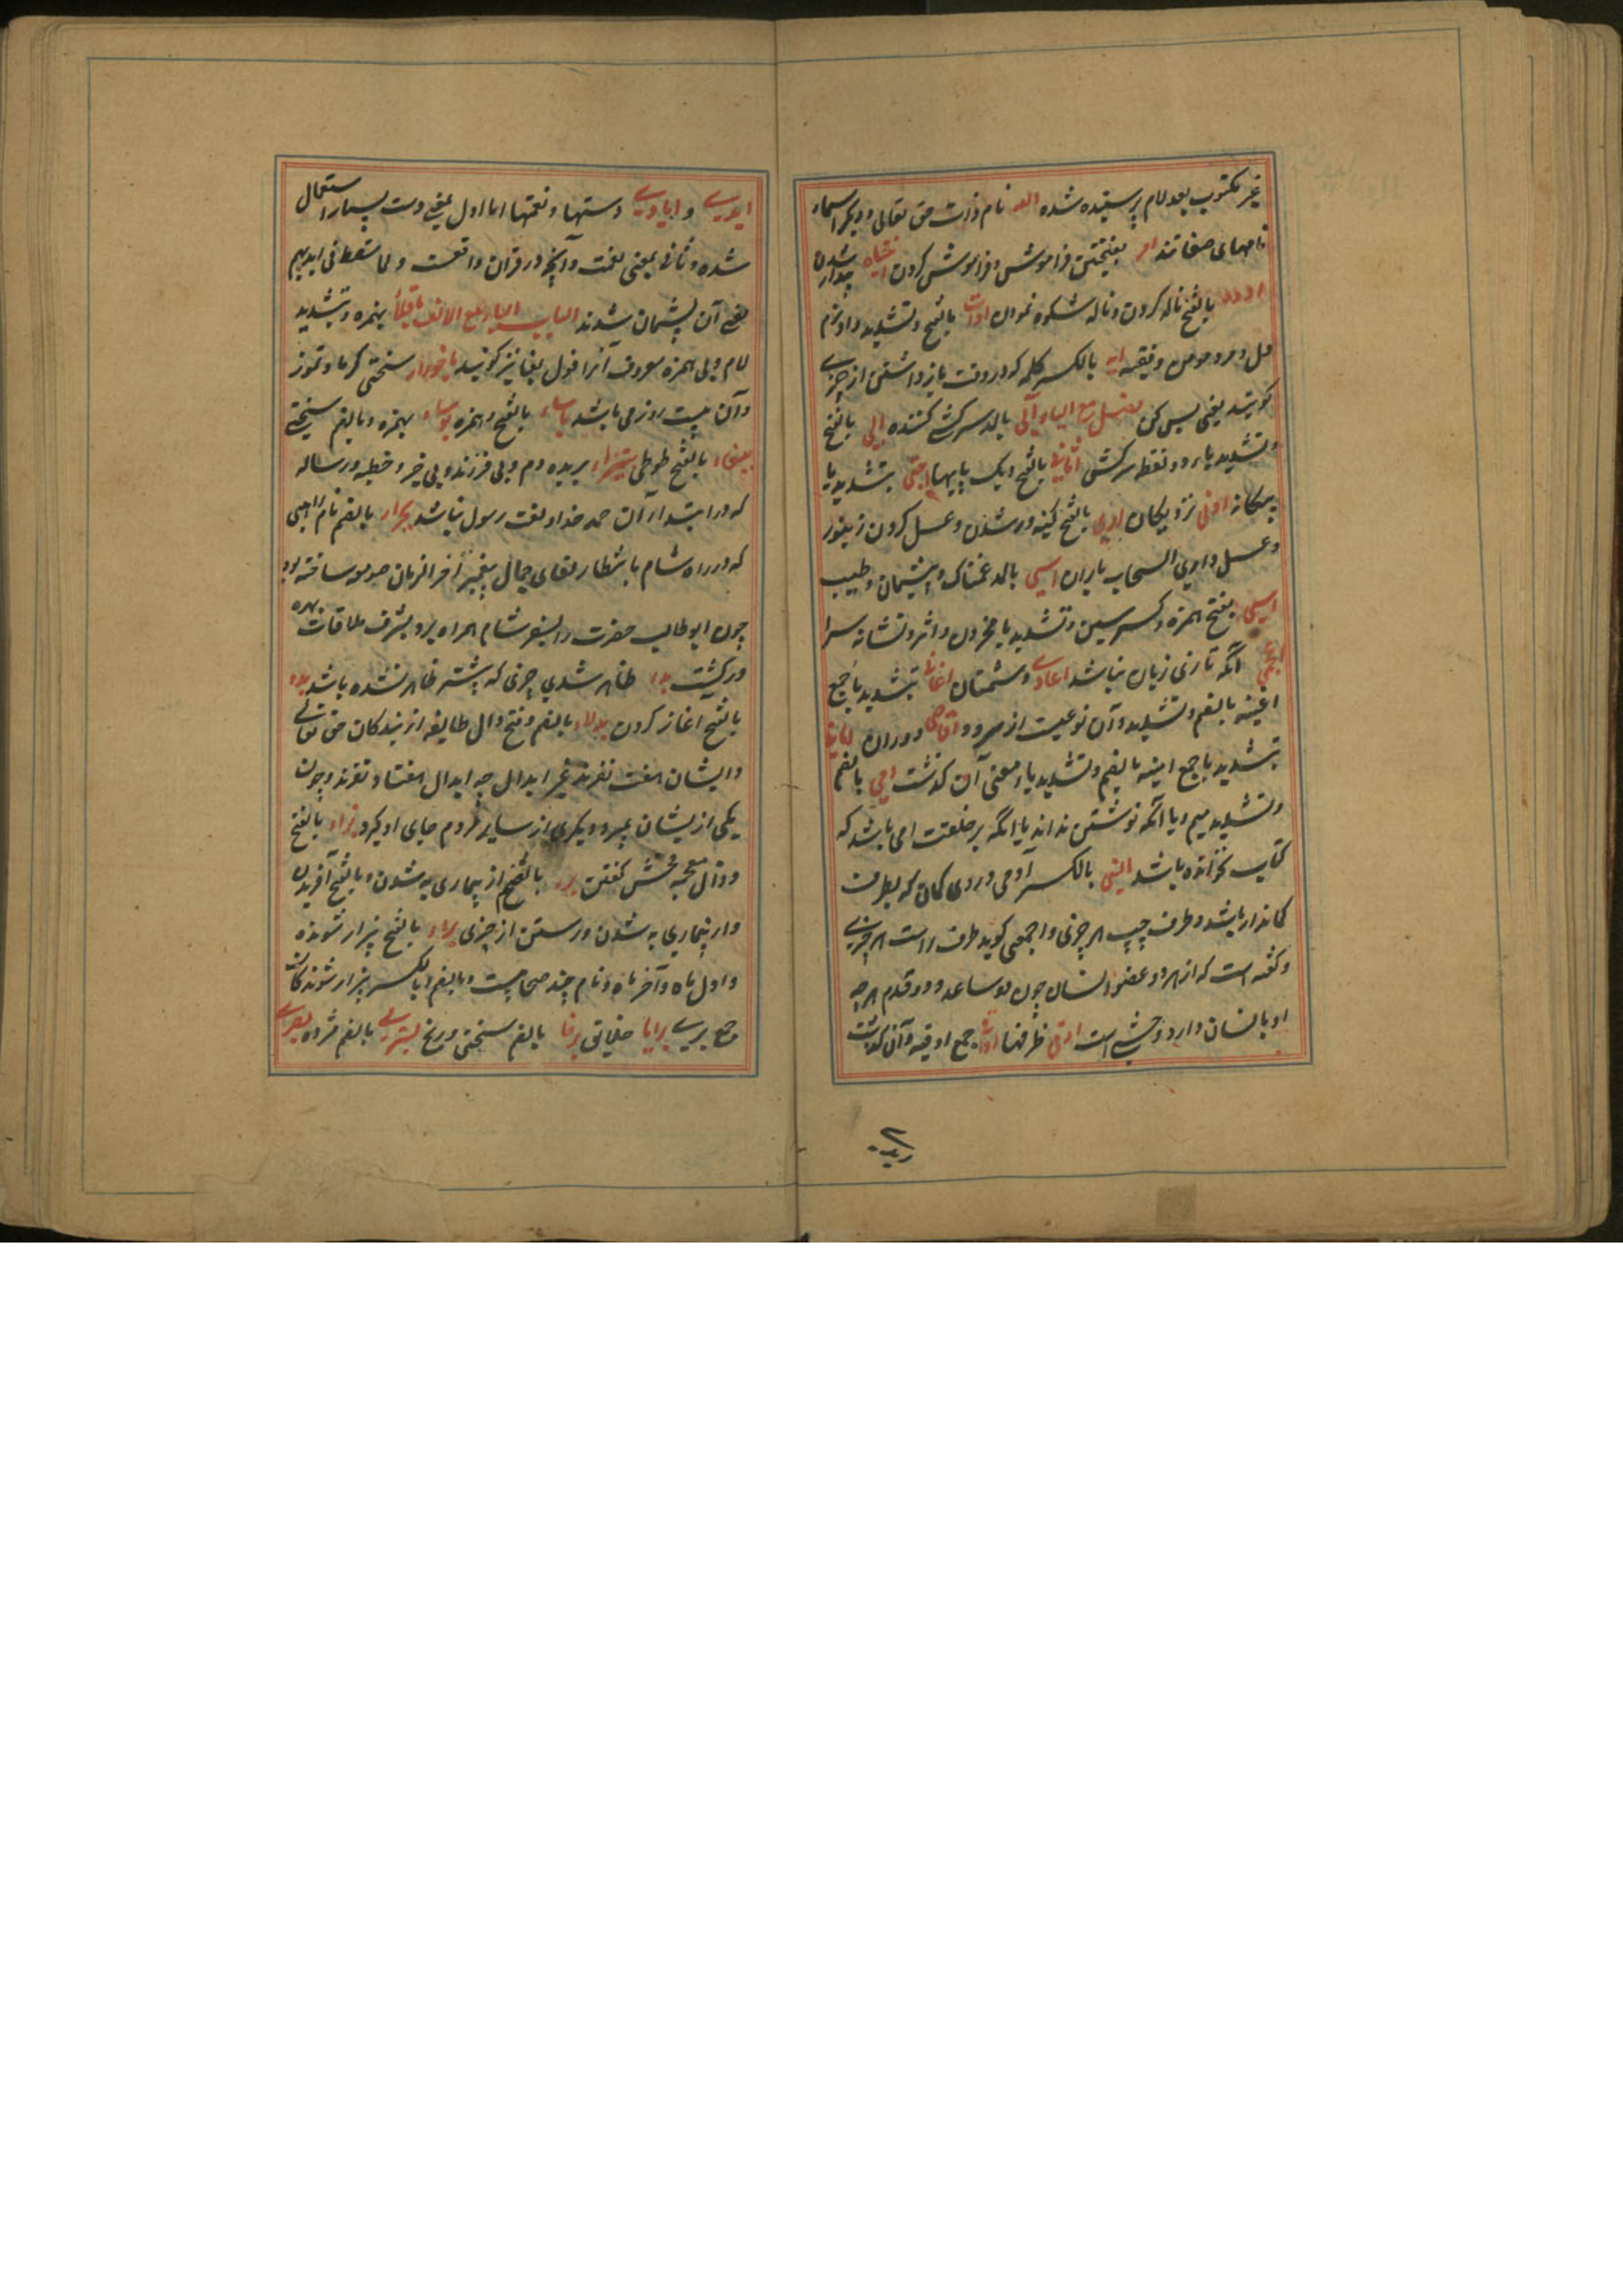 غیر مکتوب بعد لام پرستیده شده الله نام ذات حق تعالی و دیگر اسماء
نامهای صفاتند بفتحتین فراموش و فراموش کردن
بالفتح ناله کردن و ناله شکوه نمودن بالفتح و تشدید واو نرم
دل و مرد مومن و فقیه ایه بالکسر کلمه که در وقت باز داشتن از چیزی
کویند یعنی بس کن فصل مع الیاء آلی بالمد سرکشی کننده الی بالفتح
و تشدید یاء دو نقطه سرکشی اثافی بالفتح دیک پایها اجنبی بتشدید یا
بیکانه ادنی نزدیکان اری بالفتح کینه ور شدن و عسل کردن زنبور
و عسل واری السحاب باران اسی بالمد غمناک و پشیمان و طبیب
اسی بفتح همزه و کسر سین و تشدید یا محزون و اثر و نشانه سرا
اعجمی آنکه تازی زبان نباشد اعادی دشمنان اغانی بتشدید یا جمع
اغنیه بالضم و تشدید و آن نوعیست از سرود اقاصی دوران امانی
بتشدید یا جمع امنیه بالضم و تشدید یاء معنی آن کذشت امی بالضم
و تشدید میم و یا آنکه نوشتن نداند یا آنکه بر خلقت امی باشد که
کتاب نخوانده باشد انسی بالکسر آدمی و روی کمان که بطرف
کماندار باشد و طرف چپ هر چیزی و اجمعی کوید طرف راست هر چیزی
و کفته است که از هر دو عضو انسان چون دو ساعد و دو قدم هر چه
او بانسان دارد وحشی است اوانی ظرفها اواقی جمع اوقیه و آن کذشت
ایدی و ایادی دستها و نعمتها اما اول بمعنی دست بسیار استعمال
شده و ثانی بمعنی نعمت و آنچه در قران واقعست و لما سقط فی ایدیهم
معنی آن پشیمان شدند الباب الباء مع الالف باقلا بهمزه و تشدید
لام و بی همزه معروف آنرا فول بفا نیز کویند باحورا سختی کرما و تموز
و آن بیست روز می باشد باساء بالفتح و همزه بوساء بهمزه و بالضم سختی
ببغاء بالفتح طوطی بتیراء بریده دم و بی فرزند و بی خیر و خطبه و رساله
که در ابتداء آن حمد خدا و لغت رسول نباشد بحیرا بالضم نام راهبی
که در راه شام بانتظار لقای جمال پیغمبر آخر الزمان صومعه ساخته بود
چون ابو طالب حضرت را بسفر شام همراه برد بشرف ملاقات بهره
ور کشت بداء ظاهر شدن چیزی که پیشتر ظاهر نشده باشد بدء
بالفتح آغاز کردن بدلاء بالضم و فتح دال طایفه از بندکان حق تعالی
و ایشان هفت نفرند غیر ابدال چه ابدال هفتاد نفرند و چون
یکی از ایشان بمیرد دیکری از سایر مردم جای او کیرد بذاء بالفتح
و ذال معجمه فحش کفتن برء بالضم از بیماری به شدن و بالفتح آفریدن
و از بیماری به شدن و رستن از چیزی براء بالفتح بیزار شونده
و اول ماه و آخر ماه و نام چند صحابیست و بالضم و بالکسر بیزار شوندکان
جمع بری برایا خلایق برحا بالضم سختی و رنج بشری بالضم مژده بصری